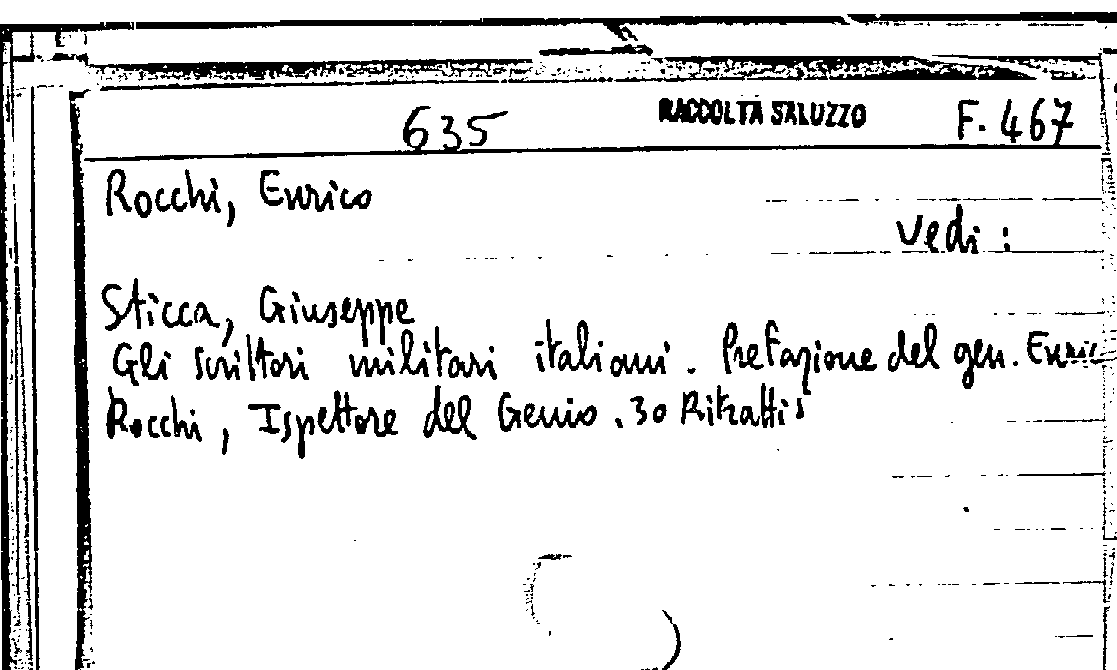 635 RACCOLTA SALUZZO F. 467
Rocchi, Enrico
Vedi :
Sticca, Giuseppe
Gli scrittori militari italiani. Prefazione del gen. Enric
Rocchi, Ispettore del Genio. 30 Ritratti